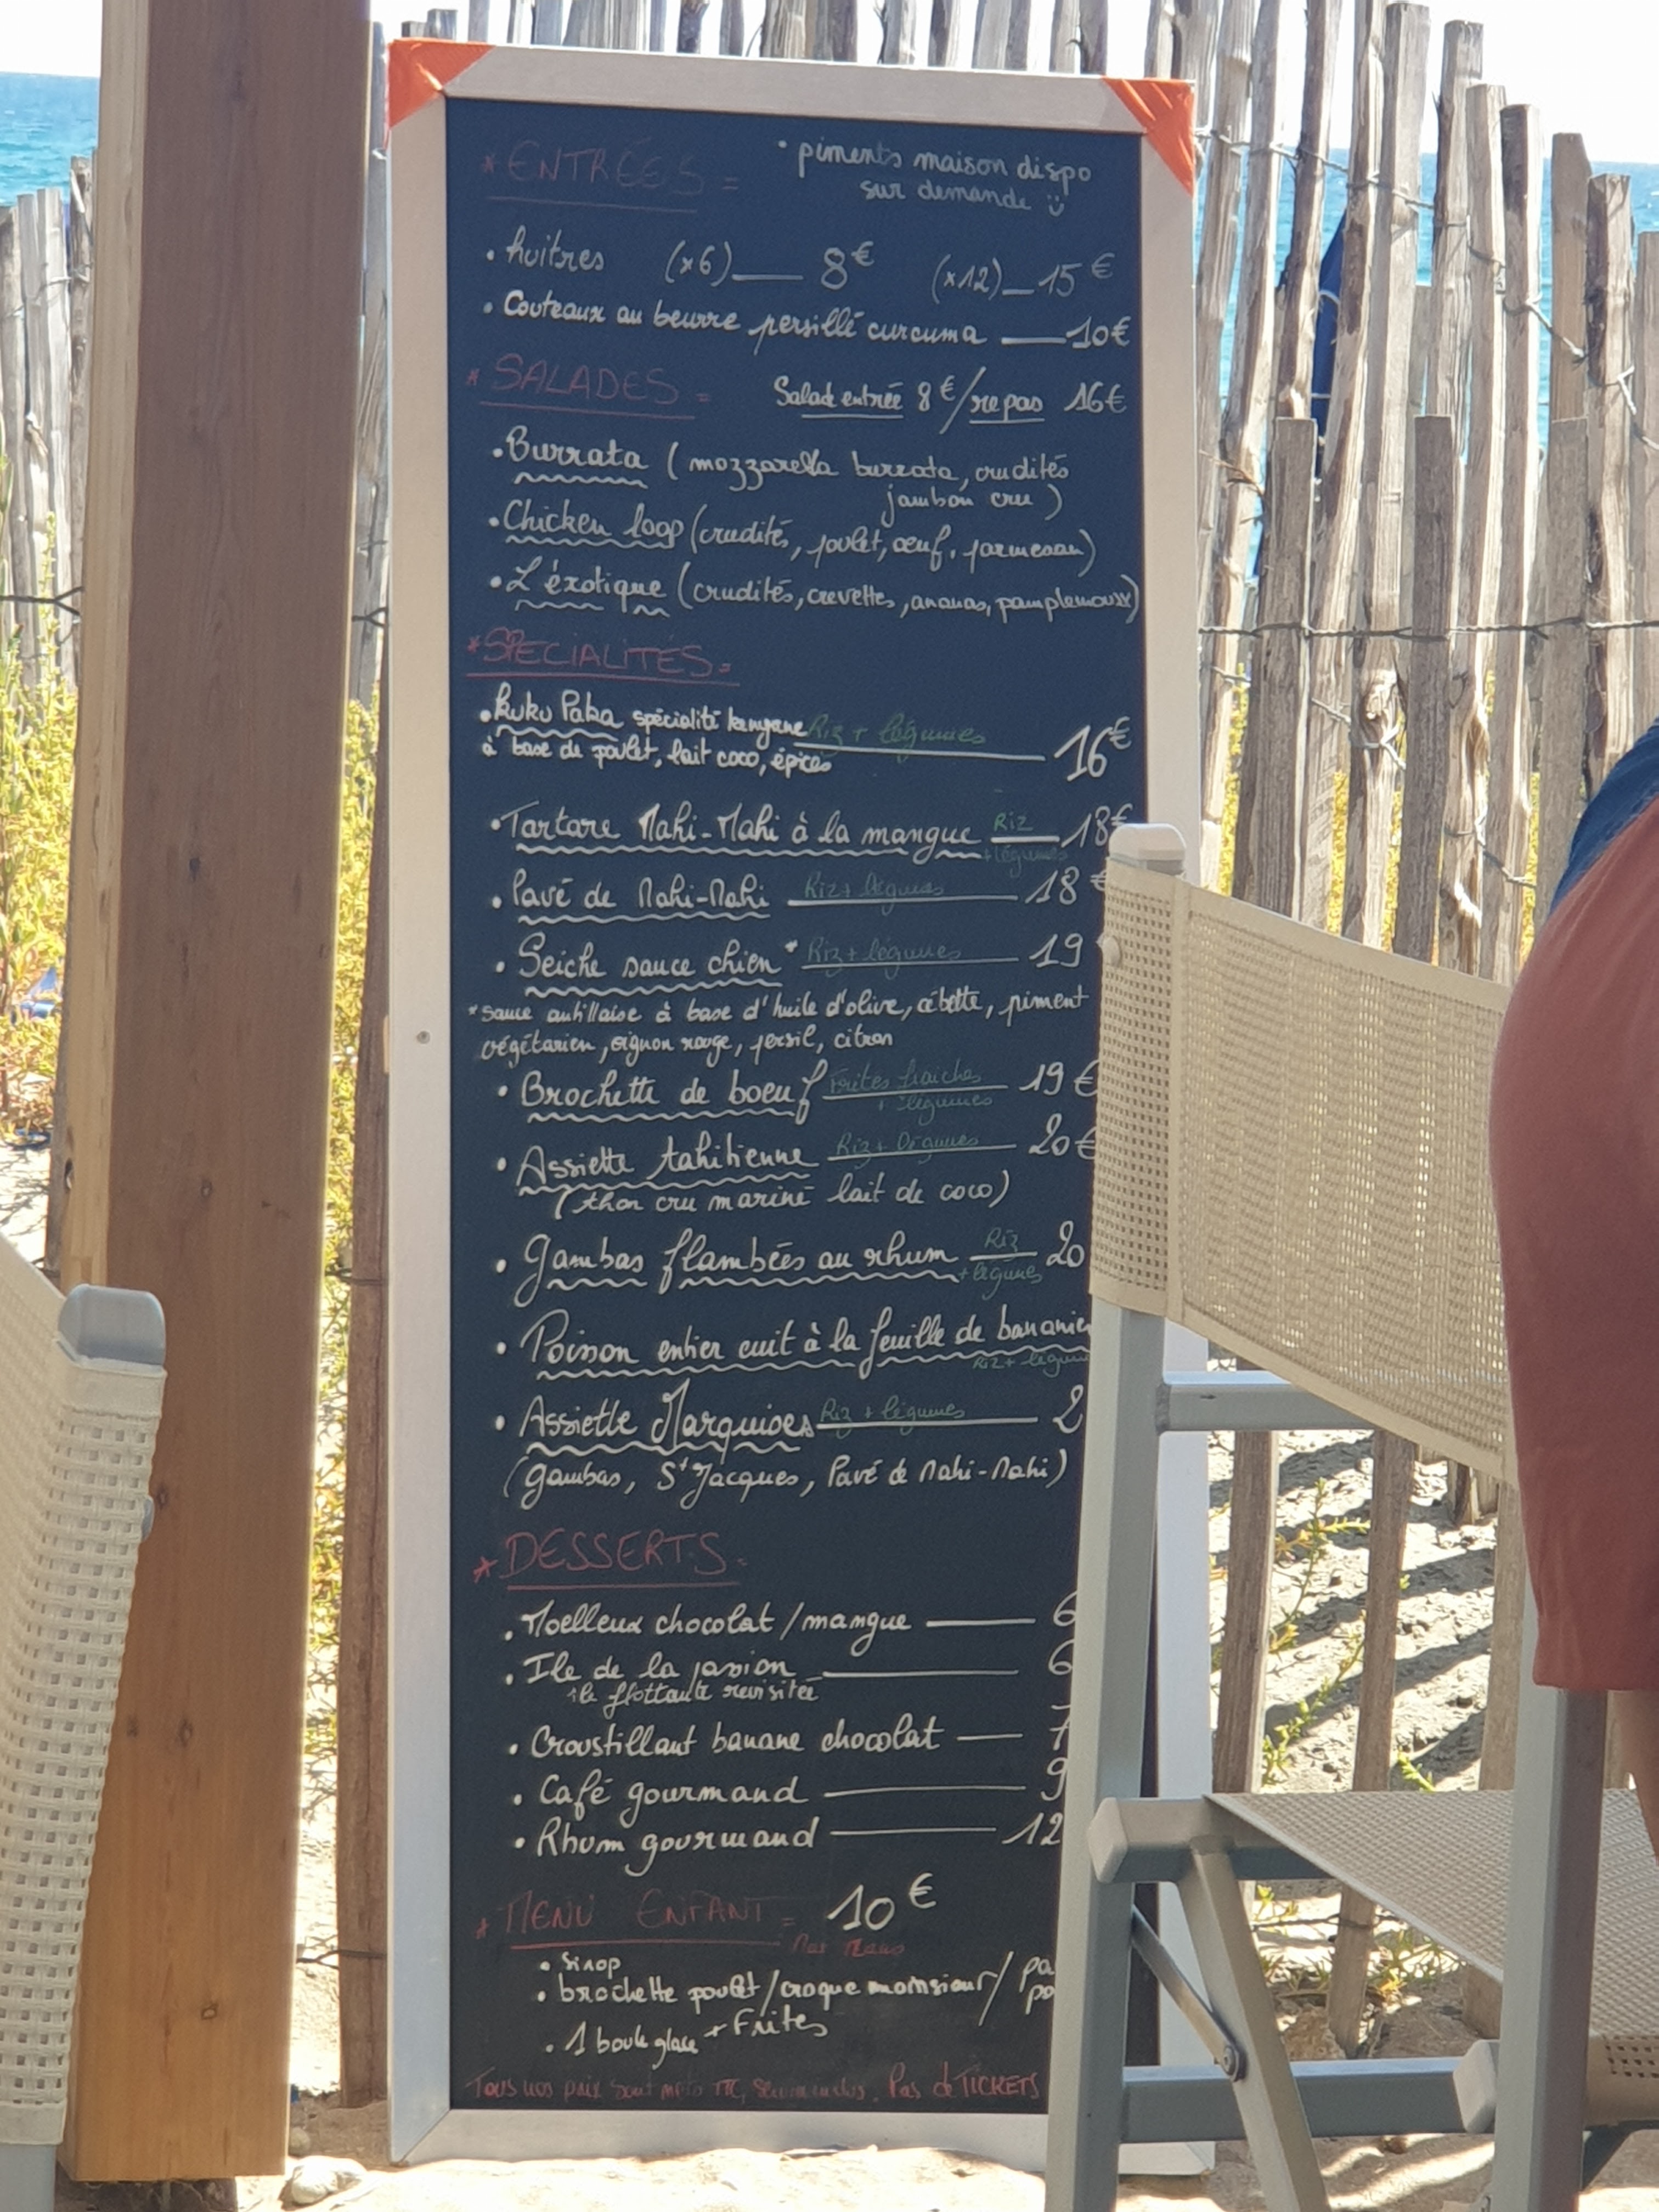 * ENTRÉES =
• piments maison dispo
sur demande
• huitres (x6) 8€ (x12) 15€
• Couteaux au beurre persillé curcuma 10€
* SALADES = Salade entrée 8€/repas 16€
• Burrata (mozzarella burrata, crudités
jambon cru)
• Chicken loop (crudités, poulet, œuf, parmesan)
• L'éxotique (crudités, crevettes, ananas, pamplemousse)
* SPECIALITÉS =
• Kuku Paka spécialité kenyane Riz + légumes 16€
à base de poulet, lait coco, épices
• Tartare Mahi-Mahi à la mangue Riz 18€
+ légumes
• Pavé de Mahi-Mahi Riz + légumes 18€
• Seiche sauce chien* Riz + légumes 19
* sauce antillaise à base d'huile d'olive, cébette, piment
végétarien, oignon rouge, persil, citron
• Brochette de boeuf Frites fraîches 19€
+ légumes
• Assiette tahitienne Riz + légumes 20€
(thon cru mariné lait de coco)
• Gambas flambées au rhum Riz 20
+ légumes
• Poisson entier cuit à la feuille de bananier
Riz + légum
• Assiette Marquises Riz + légumes 2
(gambas, St Jacques, Pavé de Mahi-Mahi)
* DESSERTS =
• Moelleux chocolat / mangue 6
• Ile de la passion 6
ile flottante revisitée
• Croustillant banane chocolat 7
• Café gourmand 9
• Rhum gourmand 12
* MENU ENFANT = 10€
• sirop
• brochette poulet / croque monsieur / pa
po
+ Frites
• 1 boule glace
Tous nos prix sont TTC, Pas de TICKETS